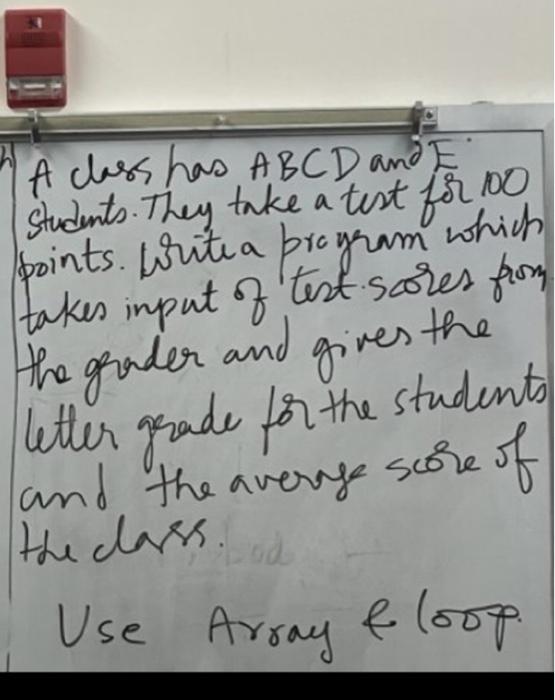 A class has A B C D and E
students. They take a test for 100
points. Write a program which
takes input of test scores from
the grader and gives the
letter grade for the students
and the average score of
the class.
Use Array & loop.